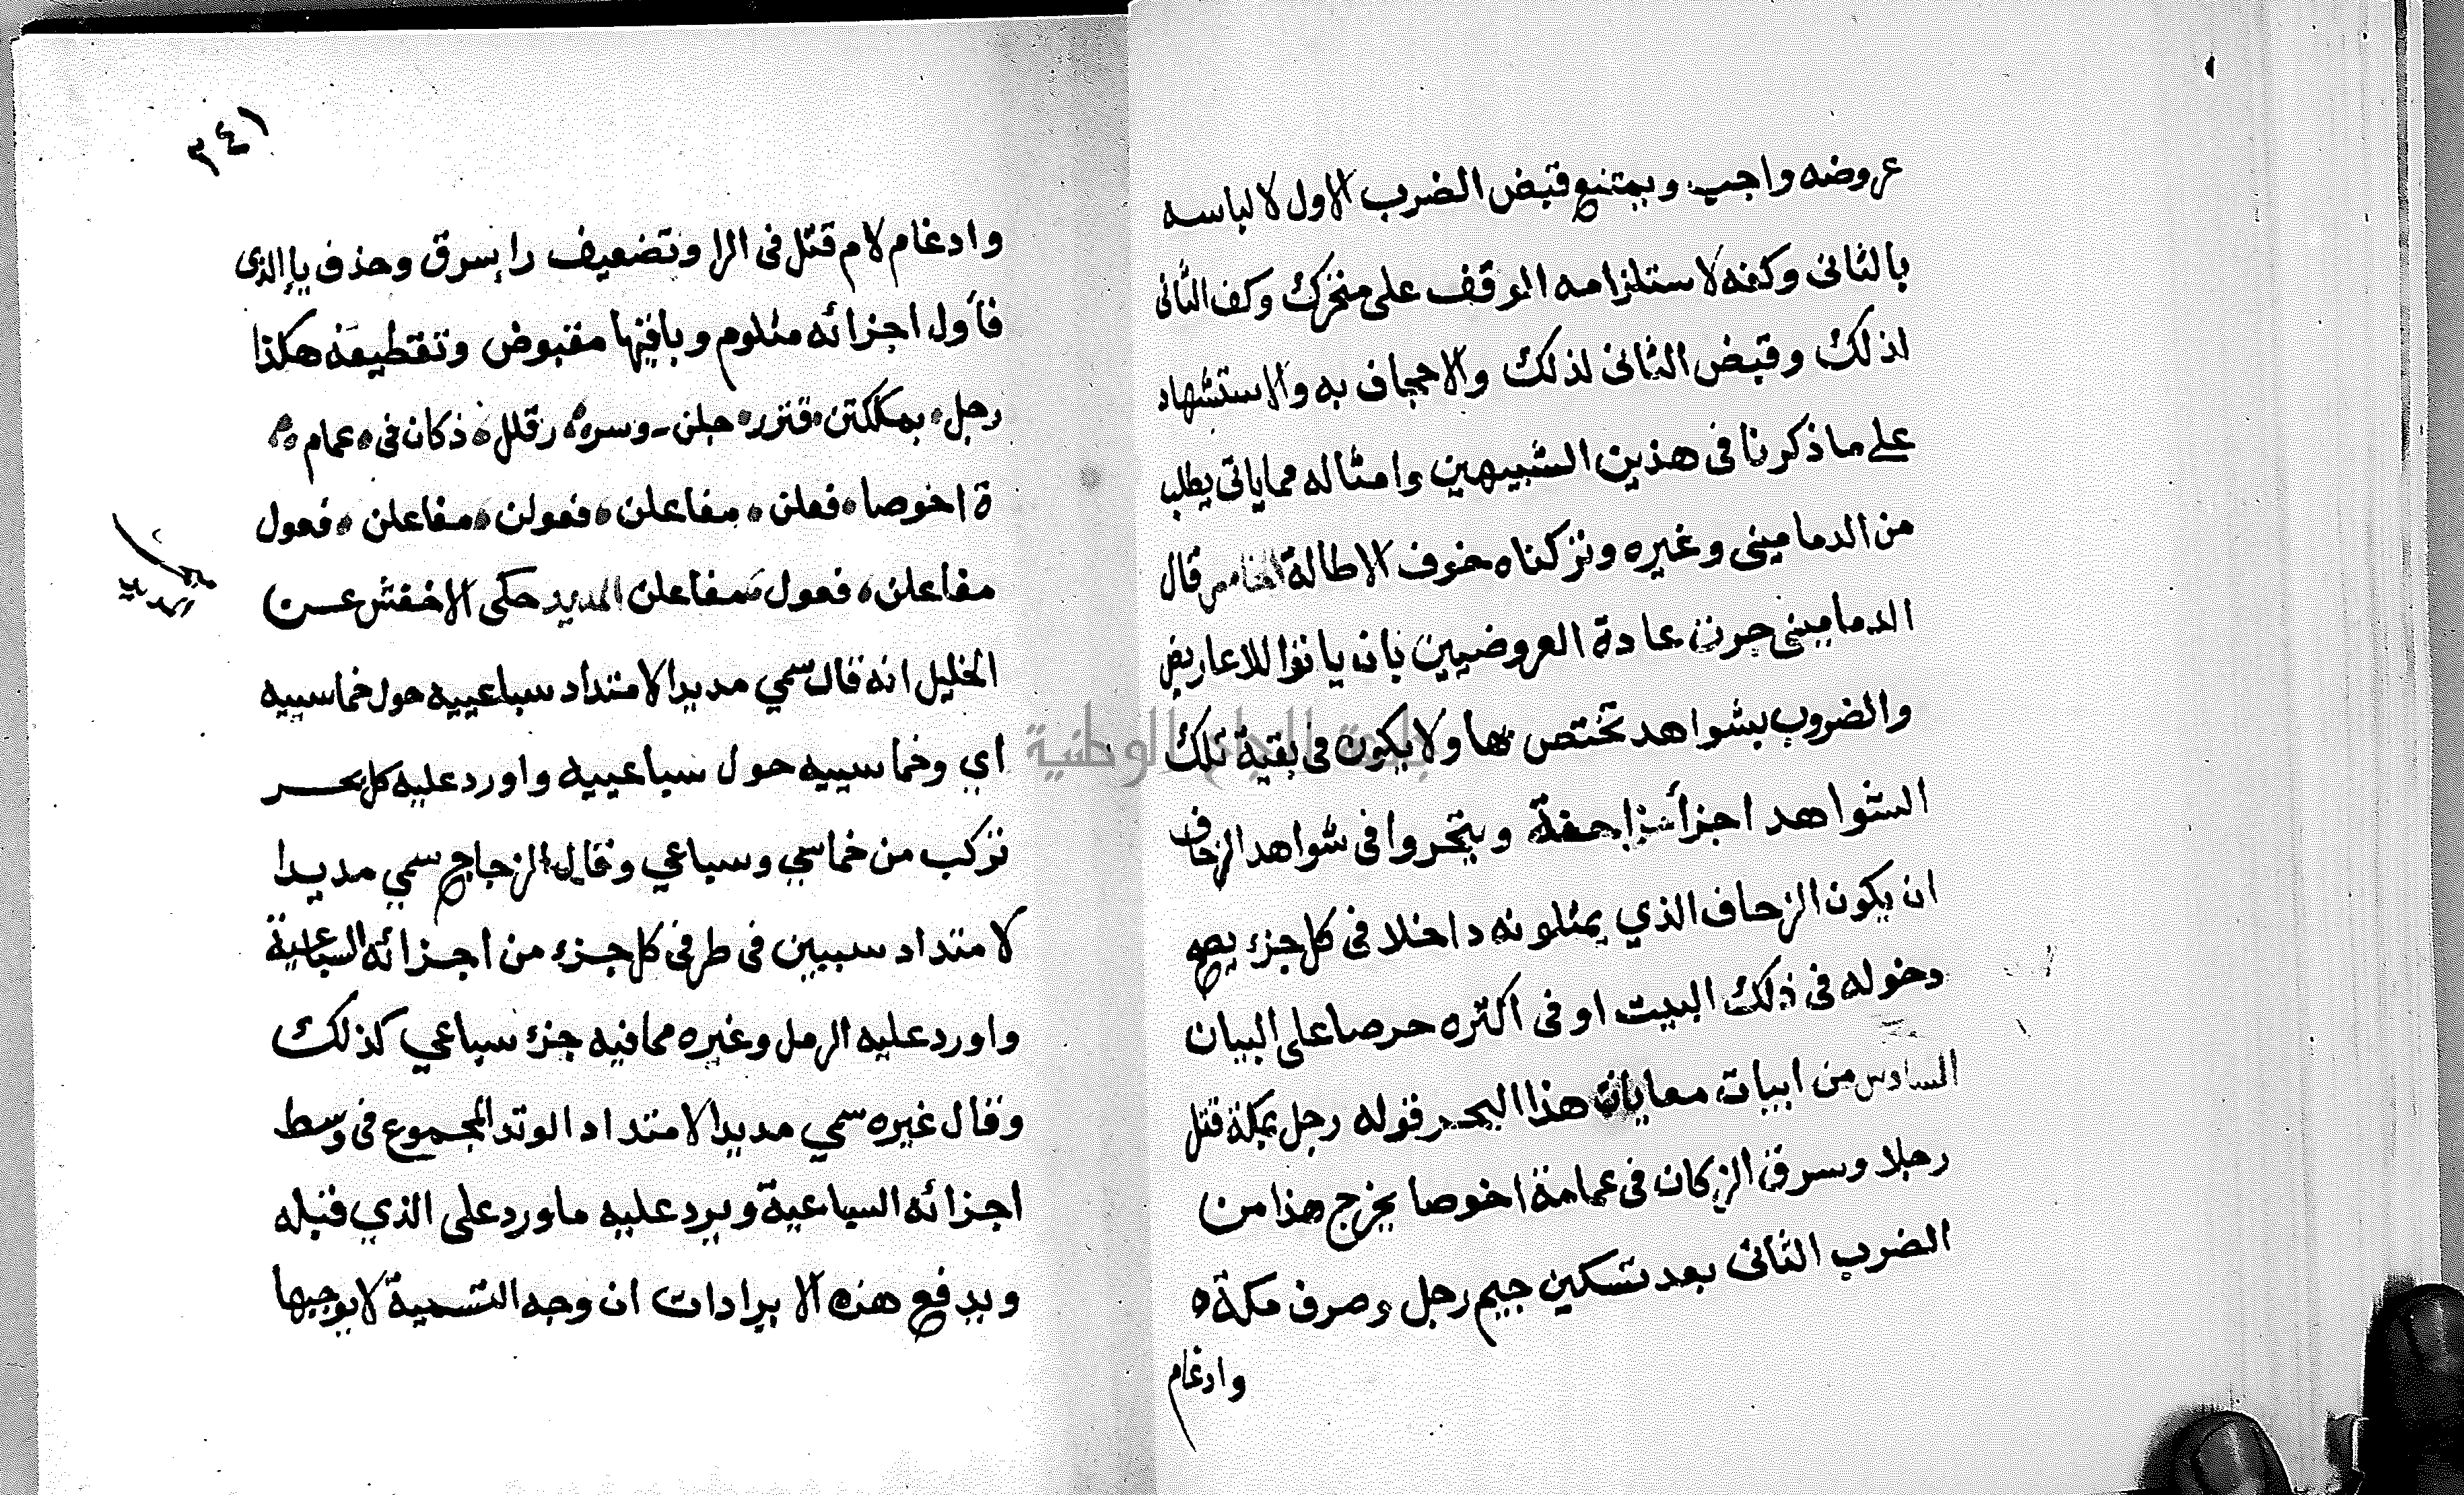 عروضه واجب ويمتنع قبض الضرب الاول لالباسه
بالثانى وكفه لاستلزامه الوقف على متحرك وكف الثانى
لذلك وقبض الثانى لذلك والاجحاف به والاستشهاد
على ما ذكرنا فى هذين الشبيهين وامثاله مما ياتى يطلب
من الدمامينى وغيره وتركناه خوف الاطالة الخامس قال
الدمامينى جرت عادة العروضيين بان ياتوا للاعاريض
والضروب بشواهد تختص بها ولا يكون فى بقية تلك
الشواهد اجزأ مزاحفة ويتحروا فى شواهد الزحاف
ان يكون الزحاف الذي يمثلونه داخلا فى كل جزء يصح
دخوله فى ذلك البيت او فى اكثره حرصا على البيان
السادس من ابيات معاياة هذا البحر قوله رجل بمكة قتل
رجلا وسرق الزكان فى عمامة اخوصا يخرج هذا من
الضرب الثانى بعد تسكين جيم رجل وصرف مكة
وادغام
٢٤١
وادغام لام قتل فى الرا وتضعيف را سرق وحذف يا الذى
فأول اجزائه مثلوم وباقيها مقبوض وتقطيعه هكذا
رجل بمككتن قترر جلن وسر رقلل ذكان فى عمام
ة اخوصا فعلن مفاعلن فعولن مفاعلن فعول
مفاعلن فعول مفاعلن المديد حكى الاخفش عن
الخليل انه قال سمي مديدا لامتداد سباعييه حول خماسييه
اي وخماسييه حول سباعييه واورد عليه كل بحر
تركب من خماسي وسباعي وقال الزجاج سمي مديدا
لامتداد سببين فى طرفى كل جزء من اجزائه السباعية
واورد عليه الرمل وغيره مما فيه جزء سباعي كذلك
وقال غيره سمي مديدا لامتداد الوتد المجموع فى وسط
اجزائه السباعية ويرد عليه ما ورد على الذي قبله
ويدفع هذه الايرادات ان وجه التسمية لا يوجبها